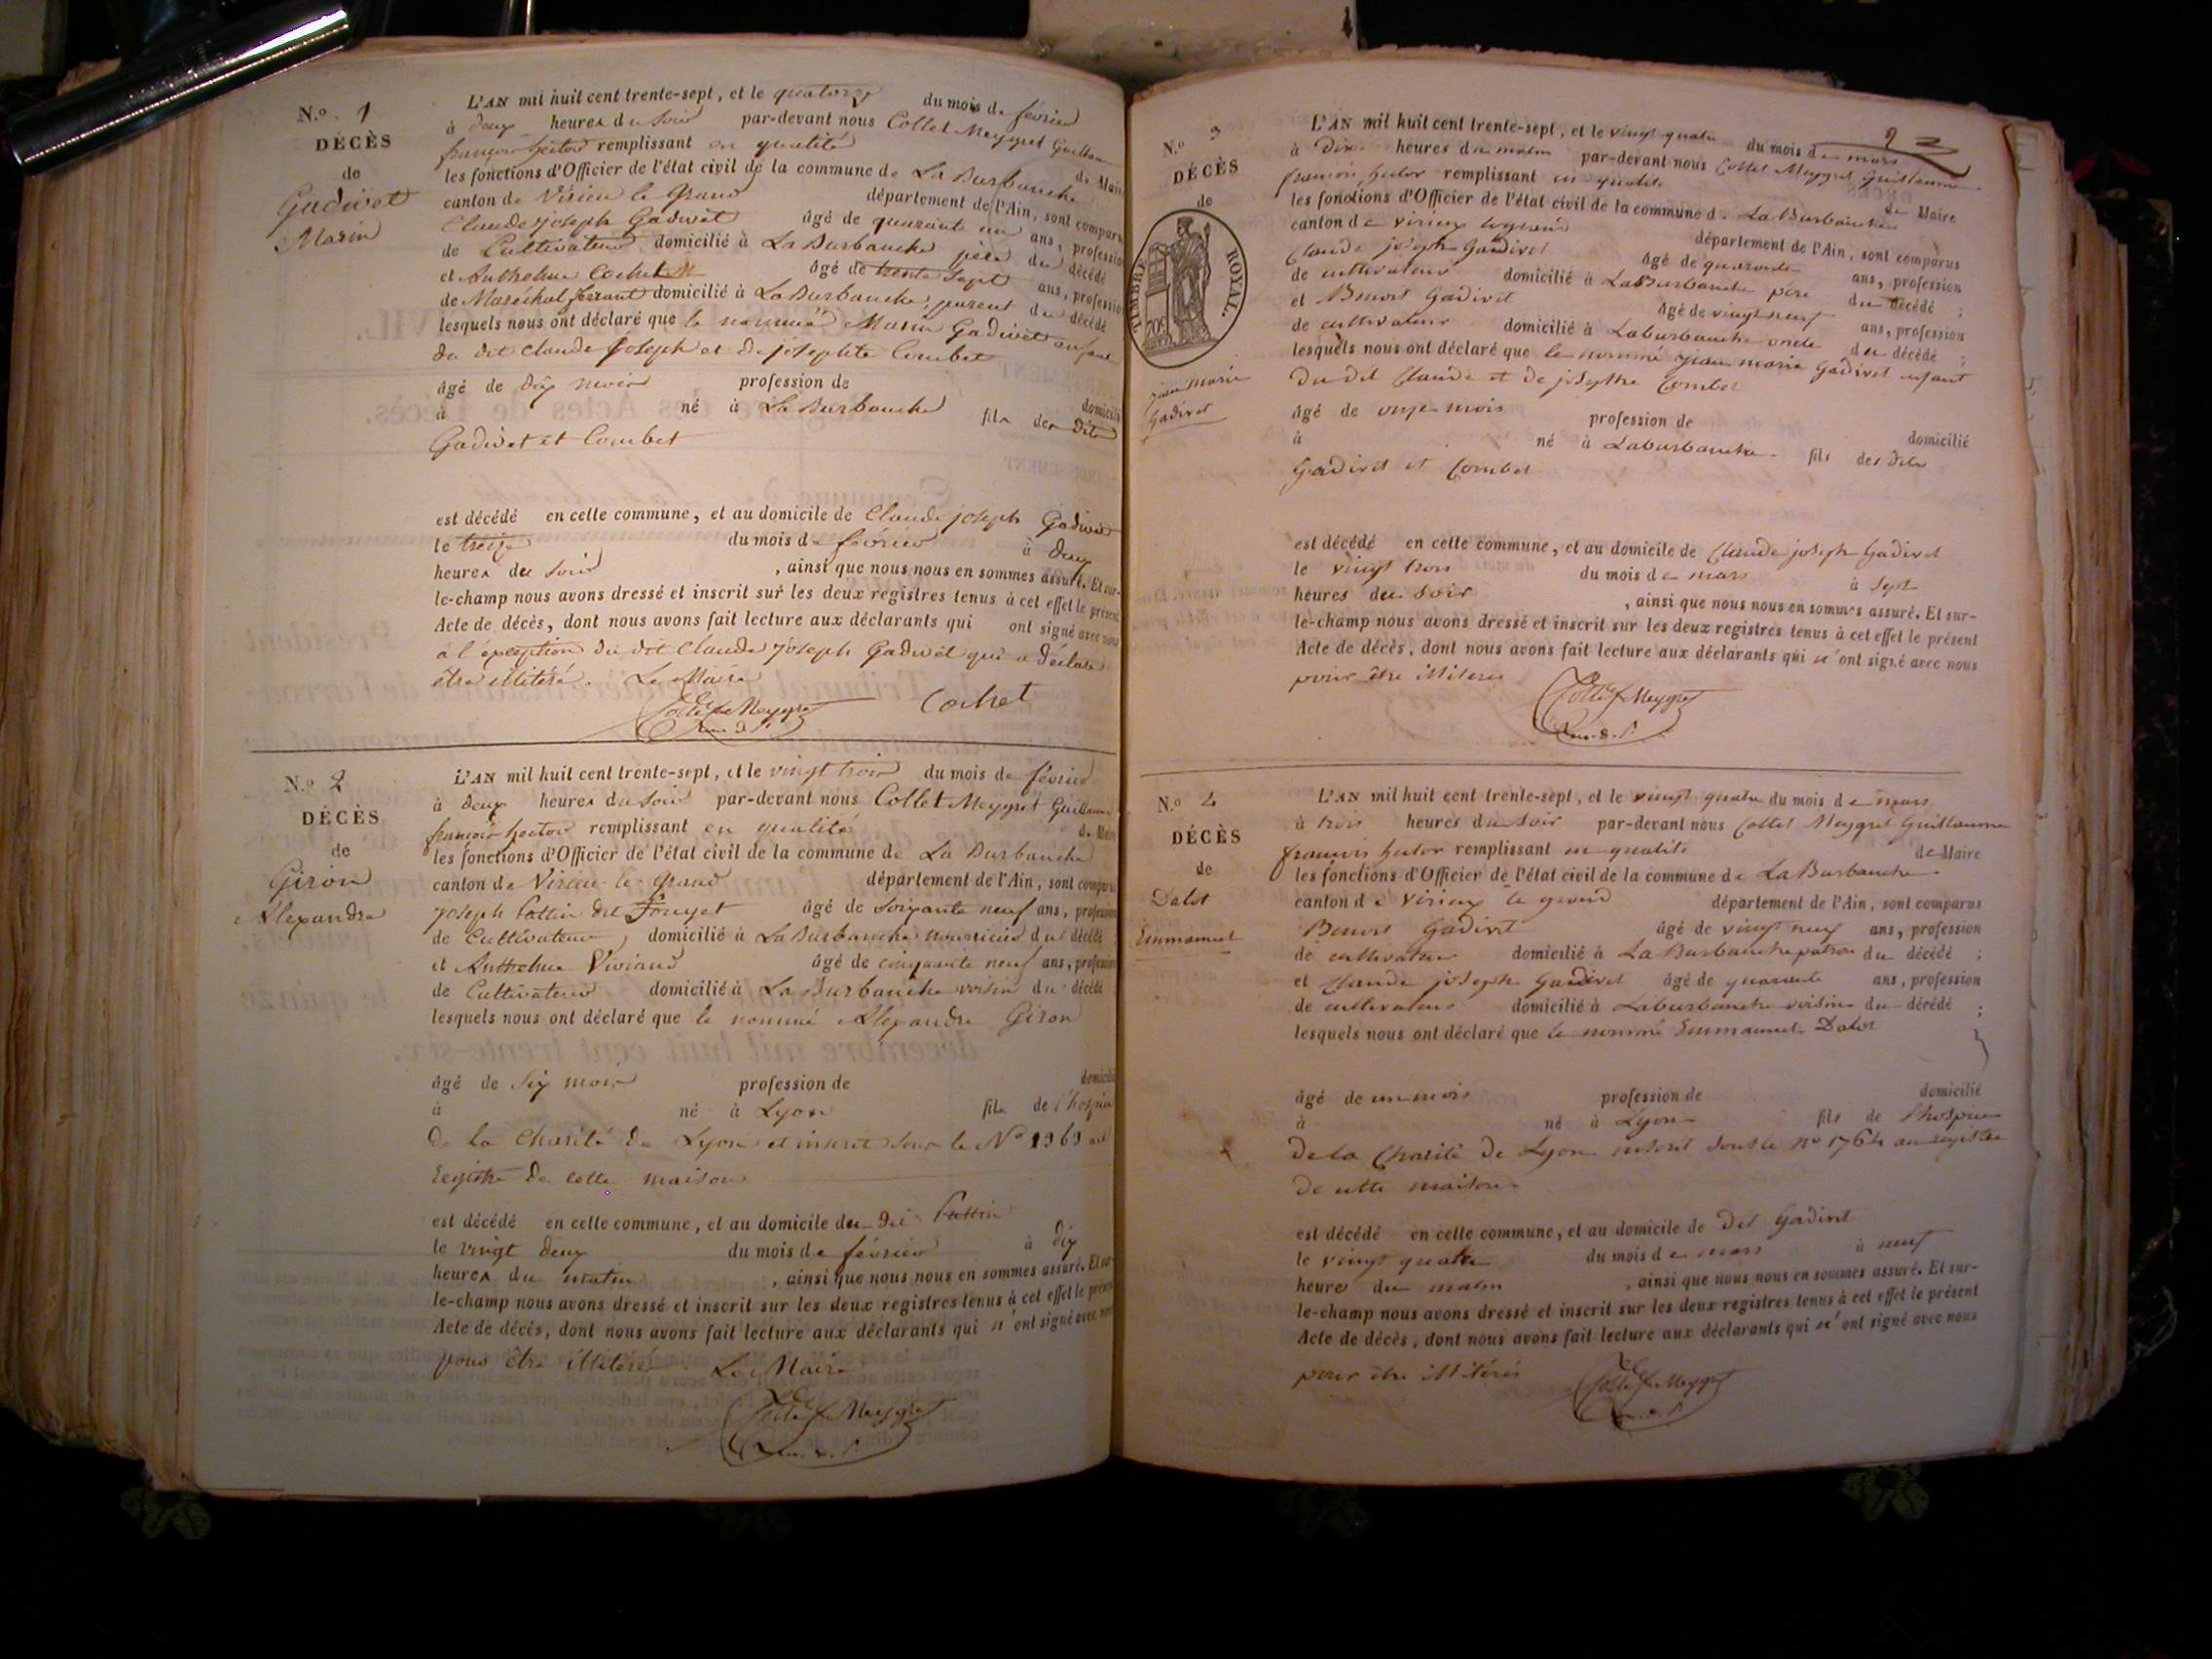 N.º 1
DÉCÈS
de
Gadivet
Marin
L'AN mil huit cent trente-sept, et le quatorze du mois de février
à deux heures du soir par-devant nous Collet Meygret Guillaume
françois hector remplissant en qualité de Maire
les fonctions d'Officier de l'état civil de la commune de La Burbanche
canton de Virieu le Grand département de l'Ain, sont comparus
Claude joseph Gadivet âgé de quarante un ans, profession
de Cultivateur domicilié à La Burbanche père du décédé
et Anthelme Cochet âgé de trente sept ans, profession
de Maréchal ferrant domicilié à La Burbanche, parent du décédé
lesquels nous ont déclaré que le nommé Marin Gadivet enfant
du dit Claude joseph et de josephte Combet
âgé de dix mois profession de domicilié
à né à La Burbanche fils des dits
Gadivet et Combet
est décédé en cette commune, et au domicile de Claude joseph Gadivet
le treize du mois de février à deux
heures du soir, ainsi que nous nous en sommes assuré. Et sur-
le-champ nous avons dressé et inscrit sur les deux registres tenus à cet effet le présent
Acte de décès, dont nous avons fait lecture aux déclarants qui ont signé avec nous
à l'exception du dit Claude joseph Gadivet qui a déclaré
être illitéré. Le Maire
Collet Meygret
Cochet
N.º 2
DÉCÈS
de
Giron
Alexandre
L'AN mil huit cent trente-sept, et le vingt trois du mois de février
à deux heures du soir par-devant nous Collet Meygret Guillaume
françois hector remplissant en qualité de Maire
les fonctions d'Officier de l'état civil de la commune de La Burbanche
canton de Virieu-le-Grand département de l'Ain, sont comparus
joseph dit âgé de soixante neuf ans, profession
de Cultivateur, domicilié à La Burbanche nourricier du décédé
et Anthelme Viviand âgé de cinquante neuf ans, profession
de Cultivateur domicilié à La Burbanche voisin du décédé
lesquels nous ont déclaré que le nommé Alexandre Giron
âgé de Six mois profession de domicilié
à né à Lyon fils de l'hospice
De la Charité De Lyon et inscrit sous le Nº 1969 au
Registre De cette maison
est décédé en cette commune, et au domicile du dit
le vingt deux du mois de février à dix
heures du matin, ainsi que nous nous en sommes assuré. Et sur-
le-champ nous avons dressé et inscrit sur les deux registres tenus à cet effet le présent
Acte de décès, dont nous avons fait lecture aux déclarants qui n'ont signé avec nous
pour être illiterés Le Maire
Collet Meygret
2
N.º 3
DÉCÈS
de
TIMBRE ROYAL.
jean marie
Gadivet
L'AN mil huit cent trente-sept, et le vingt quatre du mois de mars
à Dix heures du matin par-devant nous Collet Meygret Guillaume
francois hector remplissant en qualité de Maire
les fonctions d'Officier de l'état civil de la commune de La Burbanche
canton de virieux legrand département de l'Ain, sont comparus
Claude joseph Gadivet âgé de quarante ans, profession
de cultivateur domicilié à La Burbanche père du décédé ;
et Benoit Gadivet âgé de vingt neuf ans, profession
de cultivateur domicilié à Laburbanche oncle du décédé ;
lesquels nous ont déclaré que le nommé jean marie Gadivet enfant
Du dit Claude et de josephte Combet
âgé de onze mois profession de domicilié
à né à Laburbanche fils des dits
Gadivet et Combet
est décédé en cette commune, et au domicile de Claude joseph Gadivet
le vingt trois du mois de mars à sept
heures du soir, ainsi que nous nous en sommes assuré. Et sur-
le-champ nous avons dressé et inscrit sur les deux registres tenus à cet effet le présent
Acte de décès, dont nous avons fait lecture aux déclarants qui n'ont signé avec nous
pour être illiterés
Collet Meygret
N.º 4
DÉCÈS
de
Dalot
Emmanuel
L'AN mil huit cent trente-sept, et le vingt quatre du mois de mars
à trois heures du soir par-devant nous Collet Meygret Guillaume
francois hector remplissant en qualité de Maire
les fonctions d'Officier de l'état civil de la commune de La Burbanche
canton de Virieux le grand département de l'Ain, sont comparus
Benoit Gadivet âgé de vingt neuf ans, profession
de cultivateur domicilié à La Burbanche patron du décédé ;
et Claude joseph Gadivet âgé de quarante ans, profession
de cultivateur domicilié à Laburbanche voisin du décédé ;
lesquels nous ont déclaré que le nommé Emmanuel Dalot
âgé de un mois profession de domicilié
à né à Lyon fils de l'hospice
De la Charité De Lyon inscrit sous le nº 1764 au registre
De cette maison
est décédé en cette commune, et au domicile de Dit Gadivet
le vingt quatre du mois de mars à neuf
heures du matin, ainsi que nous nous en sommes assuré. Et sur-
le-champ nous avons dressé et inscrit sur les deux registres tenus à cet effet le présent
Acte de décès, dont nous avons fait lecture aux déclarants qui n'ont signé avec nous
pour être illitérés
Collet Meygret